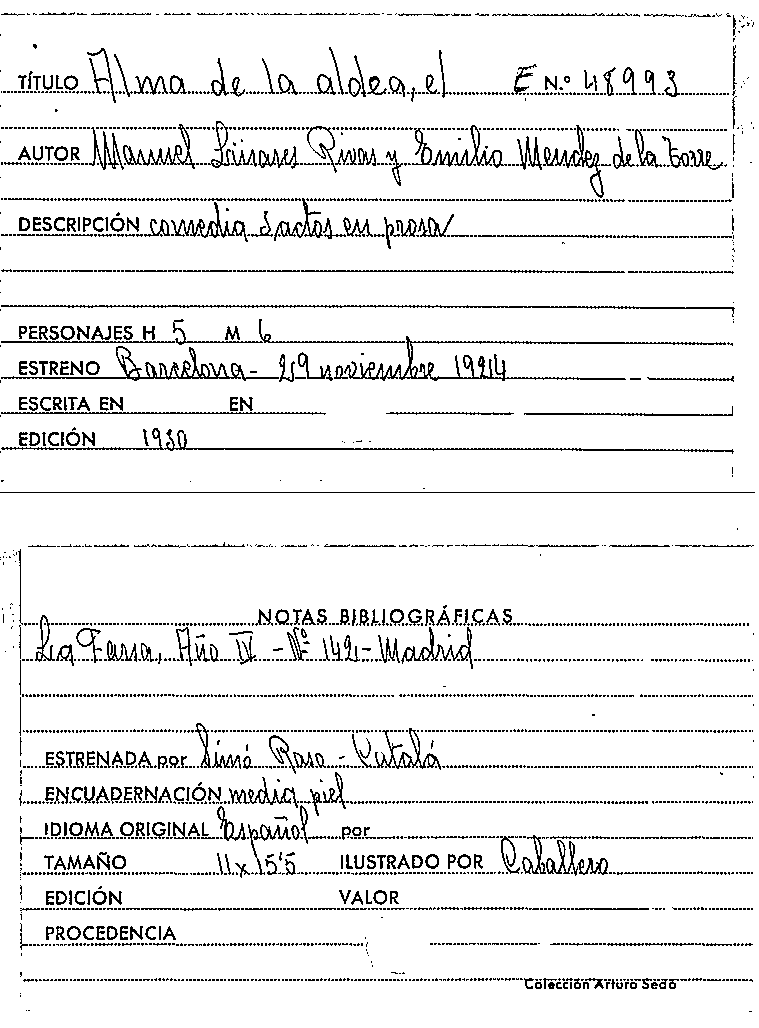 TÍTULO Alma de la aldea, el E N.º 48993
AUTOR Manuel Linares Rivas y Emilio Mendez de la Torre
DESCRIPCIÓN comedia 3 actos en prosa
PERSONAJES H 5 M 6
ESTRENO Barcelona - 29 noviembre 1924
ESCRITA EN EN
EDICIÓN 1930
NOTAS BIBLIOGRÁFICAS
La Farsa, Año IV - Nº 142 - Madrid
ESTRENADA por Simó Raso - Catalá
ENCUADERNACIÓN media piel
IDIOMA ORIGINAL Español por
TAMAÑO 11 x 15'5 ILUSTRADO POR Caballero
EDICIÓN VALOR
PROCEDENCIA
Colección Arturo Sedó